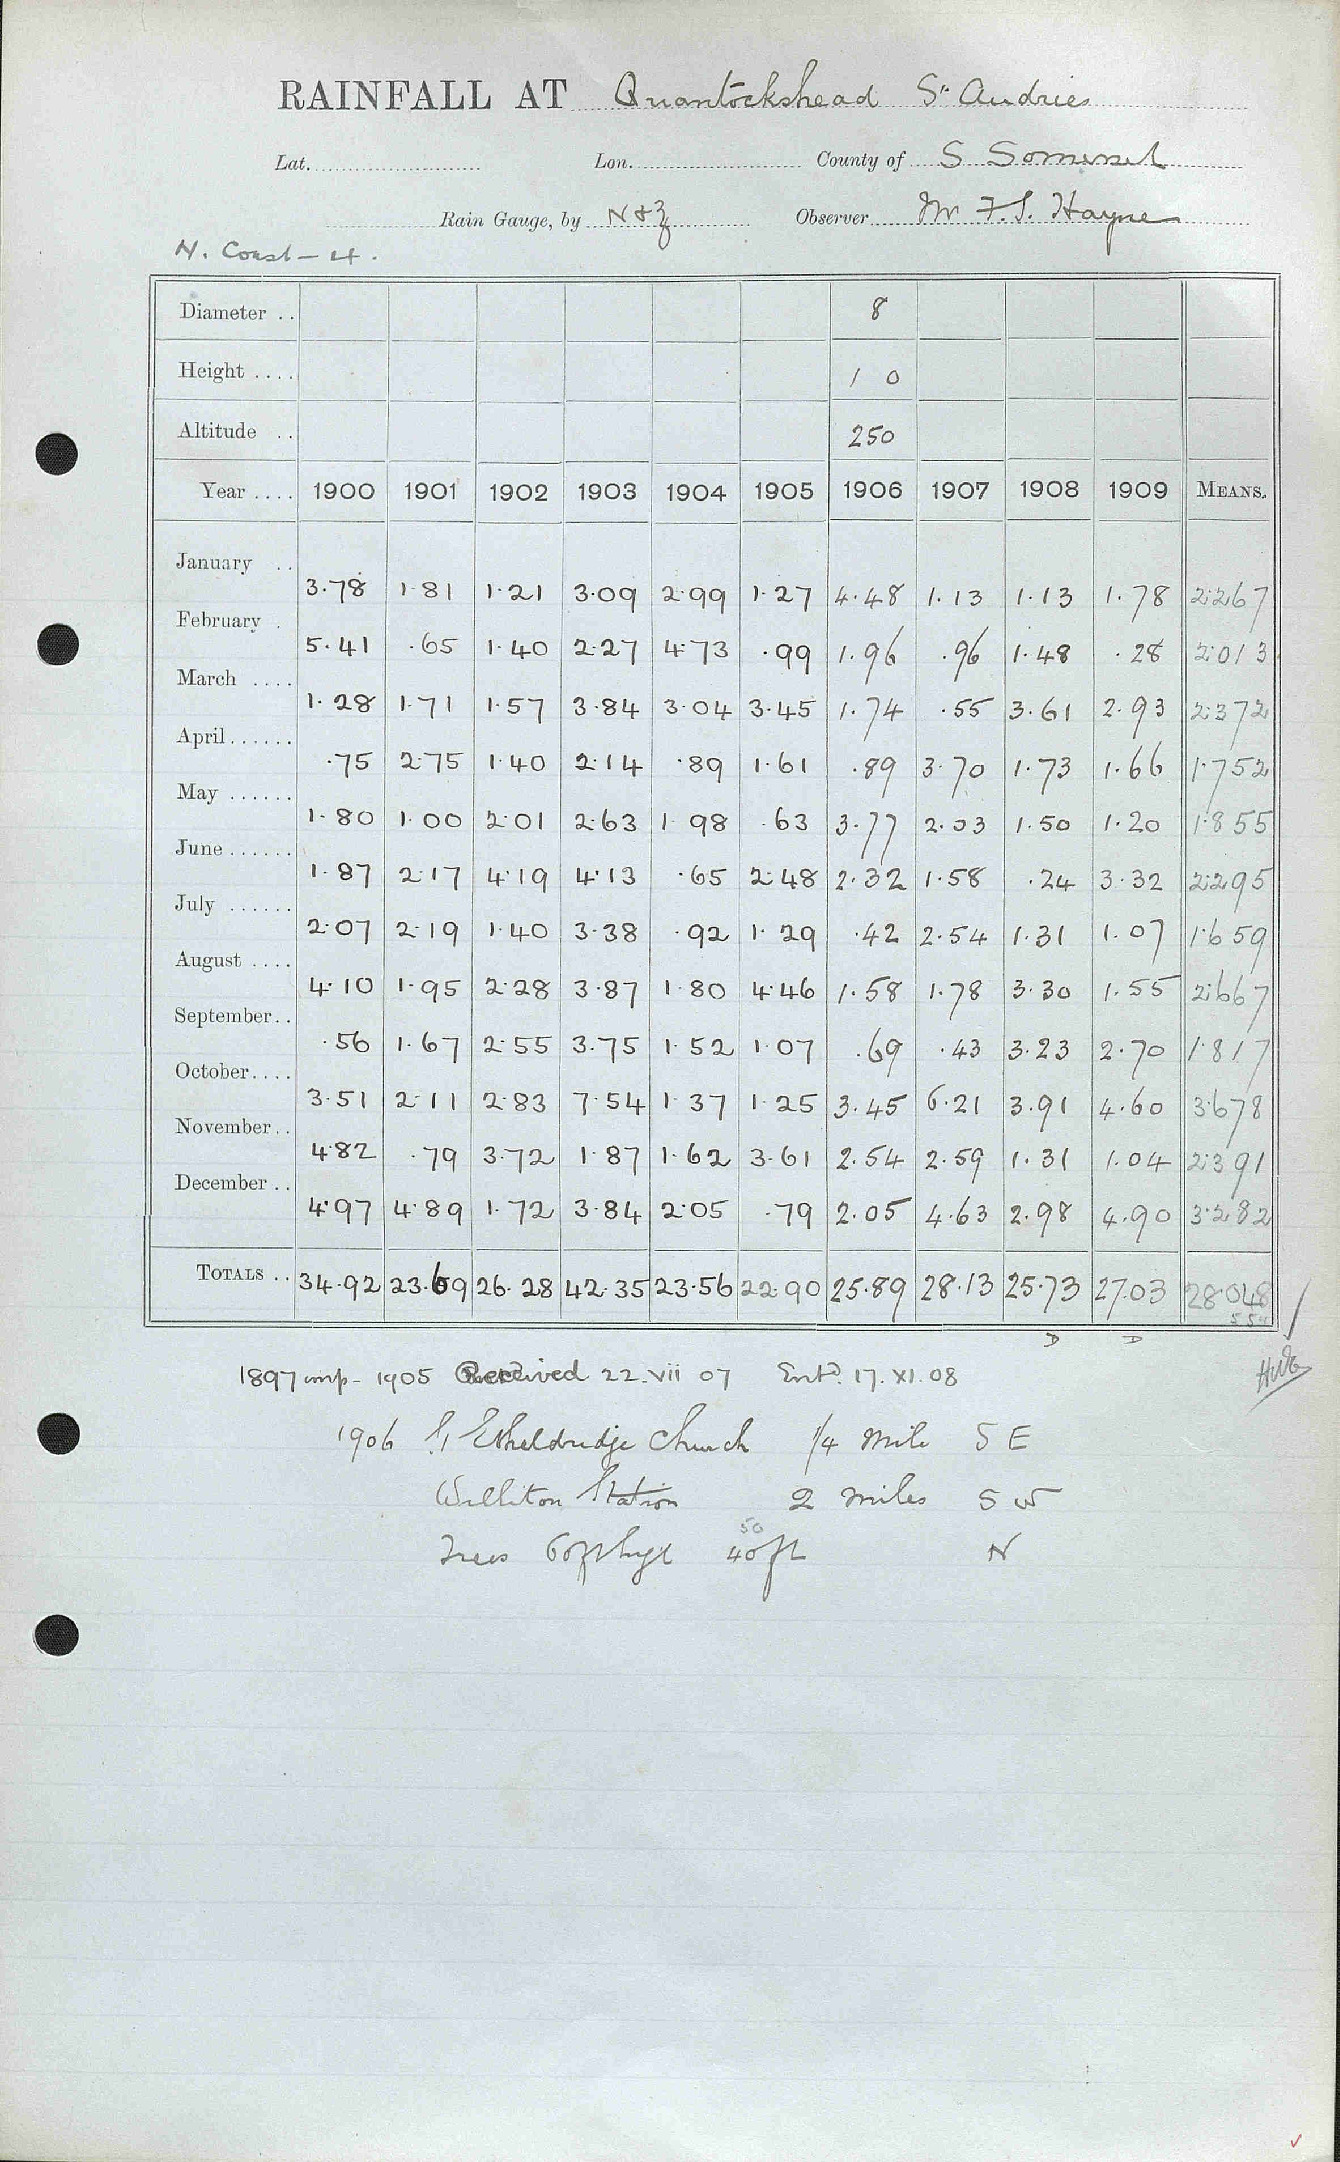 RAINFALL AT Quantockshead St Audries
Lat. Lon. County of S Somerset
Rain Gauge, by N & Z Observer Mr F. S. Hayne
N. Coast – 4.
Diameter .. 8
Height .... 1 0
Altitude .. 250
Year .... 1900 1901 1902 1903 1904 1905 1906 1907 1908 1909 MEANS.
January .. 3.78 1.81 1.21 3.09 2.99 1.27 4.48 1.13 1.13 1.78 2.267
February . 5.41 .65 1.40 2.27 4.73 .99 1.96 .96 1.48 .28 2.013
March .... 1.28 1.71 1.57 3.84 3.04 3.45 1.74 .55 3.61 2.93 2.372
April...... .75 2.75 1.40 2.14 .89 1.61 .89 3.70 1.73 1.66 1.752
May ...... 1.80 1.00 2.01 2.63 1.98 .63 3.77 2.03 1.50 1.20 1.855
June ...... 1.87 2.17 4.19 4.13 .65 2.48 2.32 1.58 .24 3.32 2.295
July ...... 2.07 2.19 1.40 3.38 .92 1.29 .42 2.54 1.31 1.07 1.659
August .... 4.10 1.95 2.28 3.87 1.80 4.46 1.58 1.78 3.30 1.55 2.667
September.. .56 1.67 2.55 3.75 1.52 1.07 .69 .43 3.23 2.70 1.817
October.... 3.51 2.11 2.83 7.54 1.37 1.25 3.45 6.21 3.91 4.60 3.678
November.. 4.82 .79 3.72 1.87 1.62 3.61 2.54 2.59 1.31 1.04 2.391
December .. 4.97 4.89 1.72 3.84 2.05 .79 2.05 4.63 2.98 4.90 3.282
TOTALS .. 34.92 23.69 26.28 42.35 23.56 22.90 25.89 28.13 25.73 27.03 28.048
D D
1897 – 1905 Received 22.vii 07 Entd. 17.XI.08
1906 St Etheldridge Church 1/4 Mile S E
Williton Station 2 miles S W
50
Trees 60ft high 40ft N